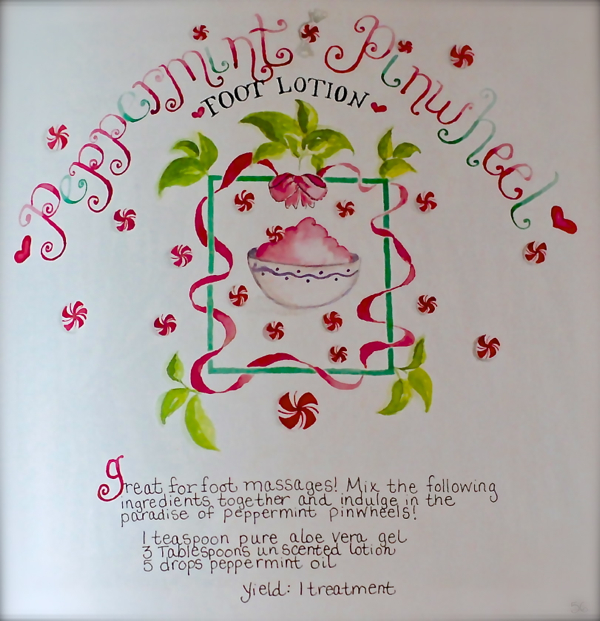 Peppermint Pinwheel
FOOT LOTION
Great for foot massages! Mix the following
ingredients together and indulge in the
paradise of peppermint pinwheels!
1 teaspoon pure aloe vera gel
3 Tablespoons unscented lotion
5 drops peppermint oil
Yield: 1 treatment